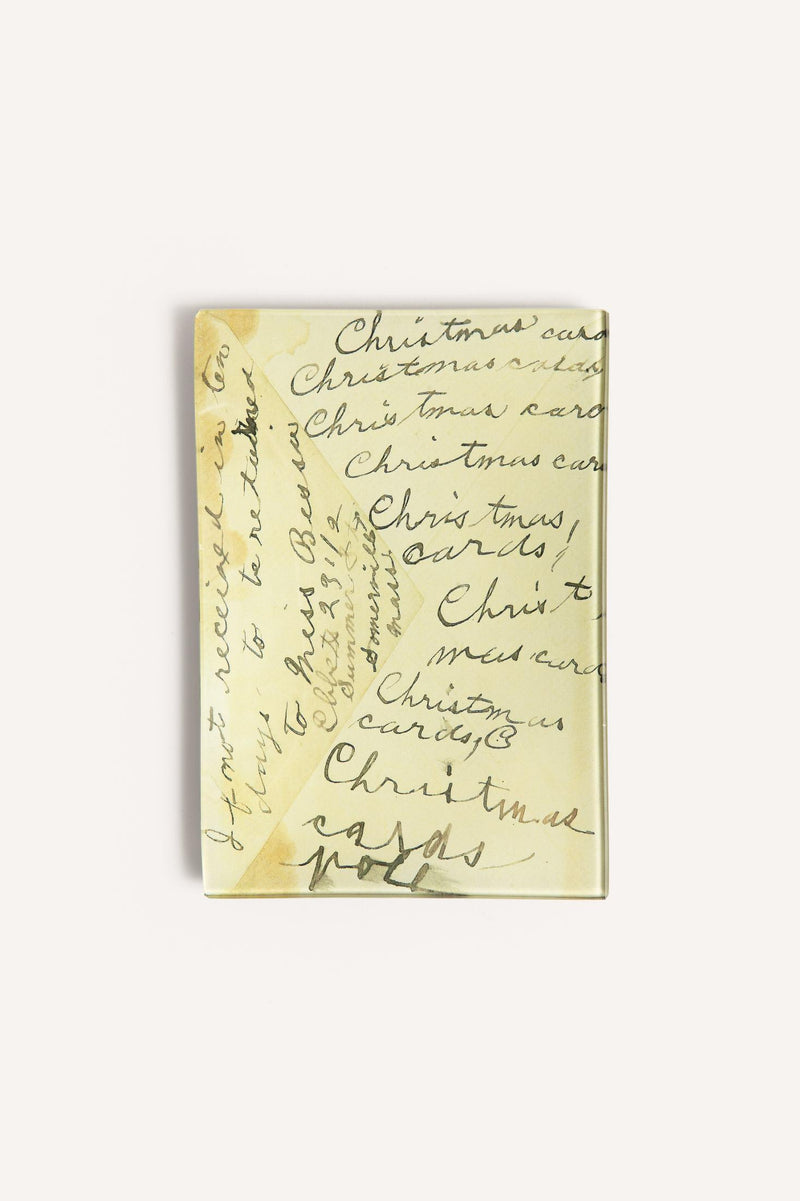 If not received in ten
days to be returned
to Miss Bessie
23 1/2
Summer St
Somerville
Mass
Christmas card
Christmas cards
Christmas card
Christmas car
Christmas,
cards!
Christ
mas card
Christmas
cards, C
Christmas
cards